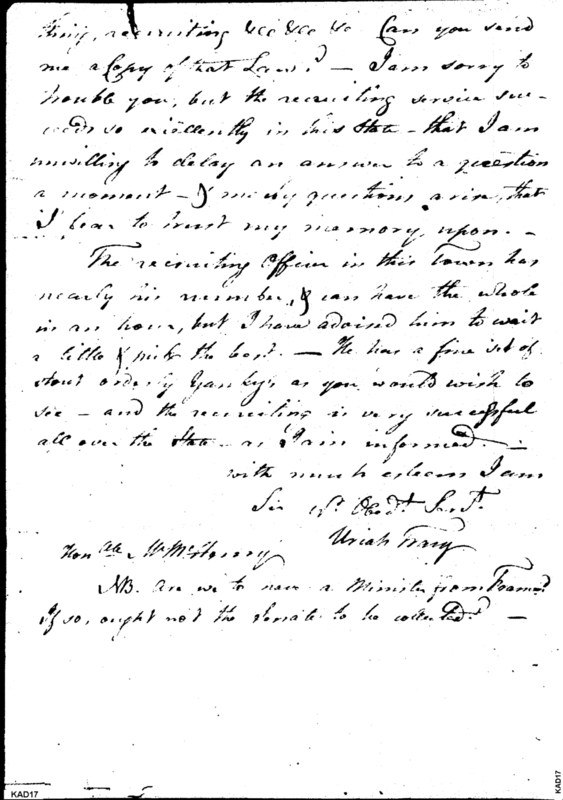 thing, recruiting &ce &ce &c Can you send
me a Copy of that Law? — I am sorry to
trouble you, but the recruiting service suc-
ceeds so excellently in this State - that I am
unwilling to delay an answer to a question
a moment - & many questions arise, that
I fear to trust my memory upon. -
The recruiting Officer in this Town has
nearly his number, & can have the whole
in an hour, but I have advised him to wait
a little & pick the best. — He has a fine set of
stout orderly Yankys as you would wish to
see - and the recruiting is very successful
all over the State - as I am informed. -
with much esteem I am
Sir Yr. Obedt. Servt.
Uriah Tracy
Honble Mr McHenry
NB. Are we to have a Minister from France?
If so, ought not the Senate to be collected? —
KAD17
KAD17